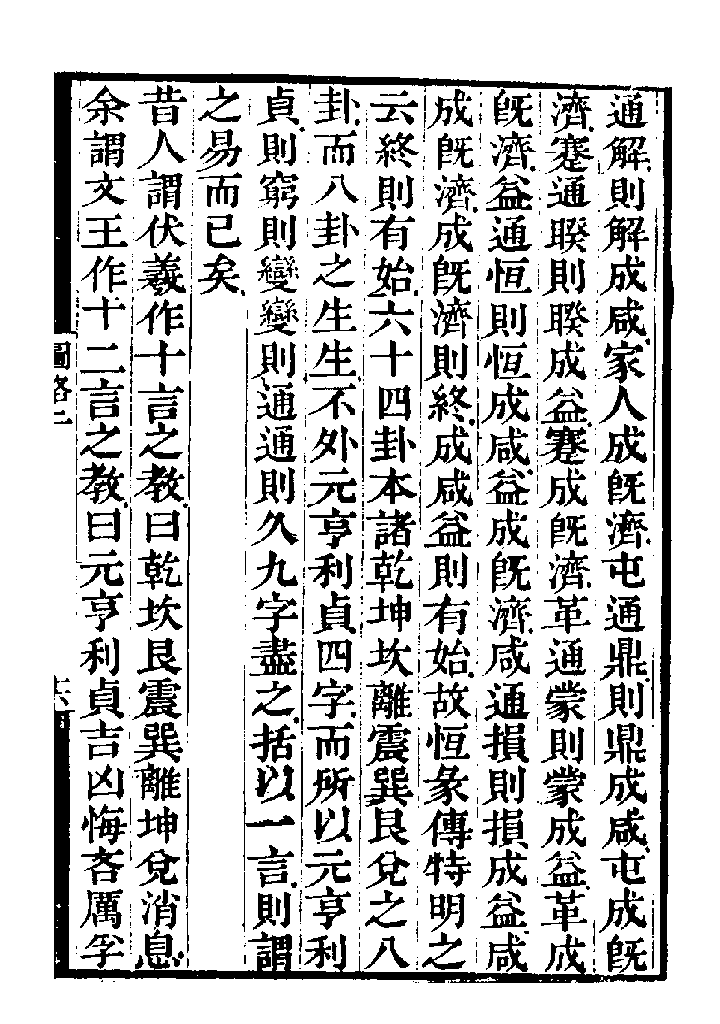 通解則解成咸家人成旣濟屯通鼎則鼎成咸屯成旣
濟蹇通睽則睽成益蹇成旣濟革通蒙則蒙成益革成
旣濟益通恒則恒成咸益成旣濟咸通損則損成益咸
成旣濟成旣濟則終成咸益則有始故恒彖傳特明之
云終則有始六十四卦本諸乾坤坎離震巽艮兌之八
卦而八卦之生生不外元亨利貞四字而所以元亨利
貞則窮則變變則通通則久九字盡之括以一言則謂
之易而已矣
昔人謂伏羲作十言之教曰乾坎艮震巽離坤兌消息
余謂文王作十二言之教曰元亨利貞吉凶悔吝厲孚
圖略二
六